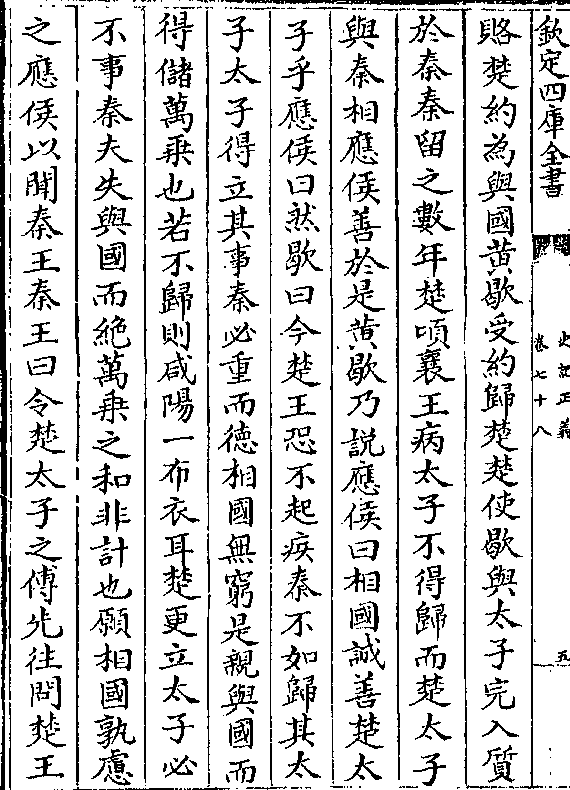 欽定四庫全書
史記正義
卷七十八
五
賂楚約為與國黄歇受約歸楚楚使歇與太子完入質
於秦秦留之數年楚頃襄王病太子不得歸而楚太子
與秦相應侯善於是黄歇乃説應侯曰相國誠善楚太
子乎應侯曰然歇曰今楚王恐不起疾秦不如歸其太
子太子得立其事秦必重而德相國無窮是親與國而
得儲萬乗也若不歸則咸陽一布衣耳楚更立太子必
不事秦夫失與國而絶萬乗之和非計也願相國孰慮
之應侯以聞秦王秦王曰令楚太子之傅先往問楚王